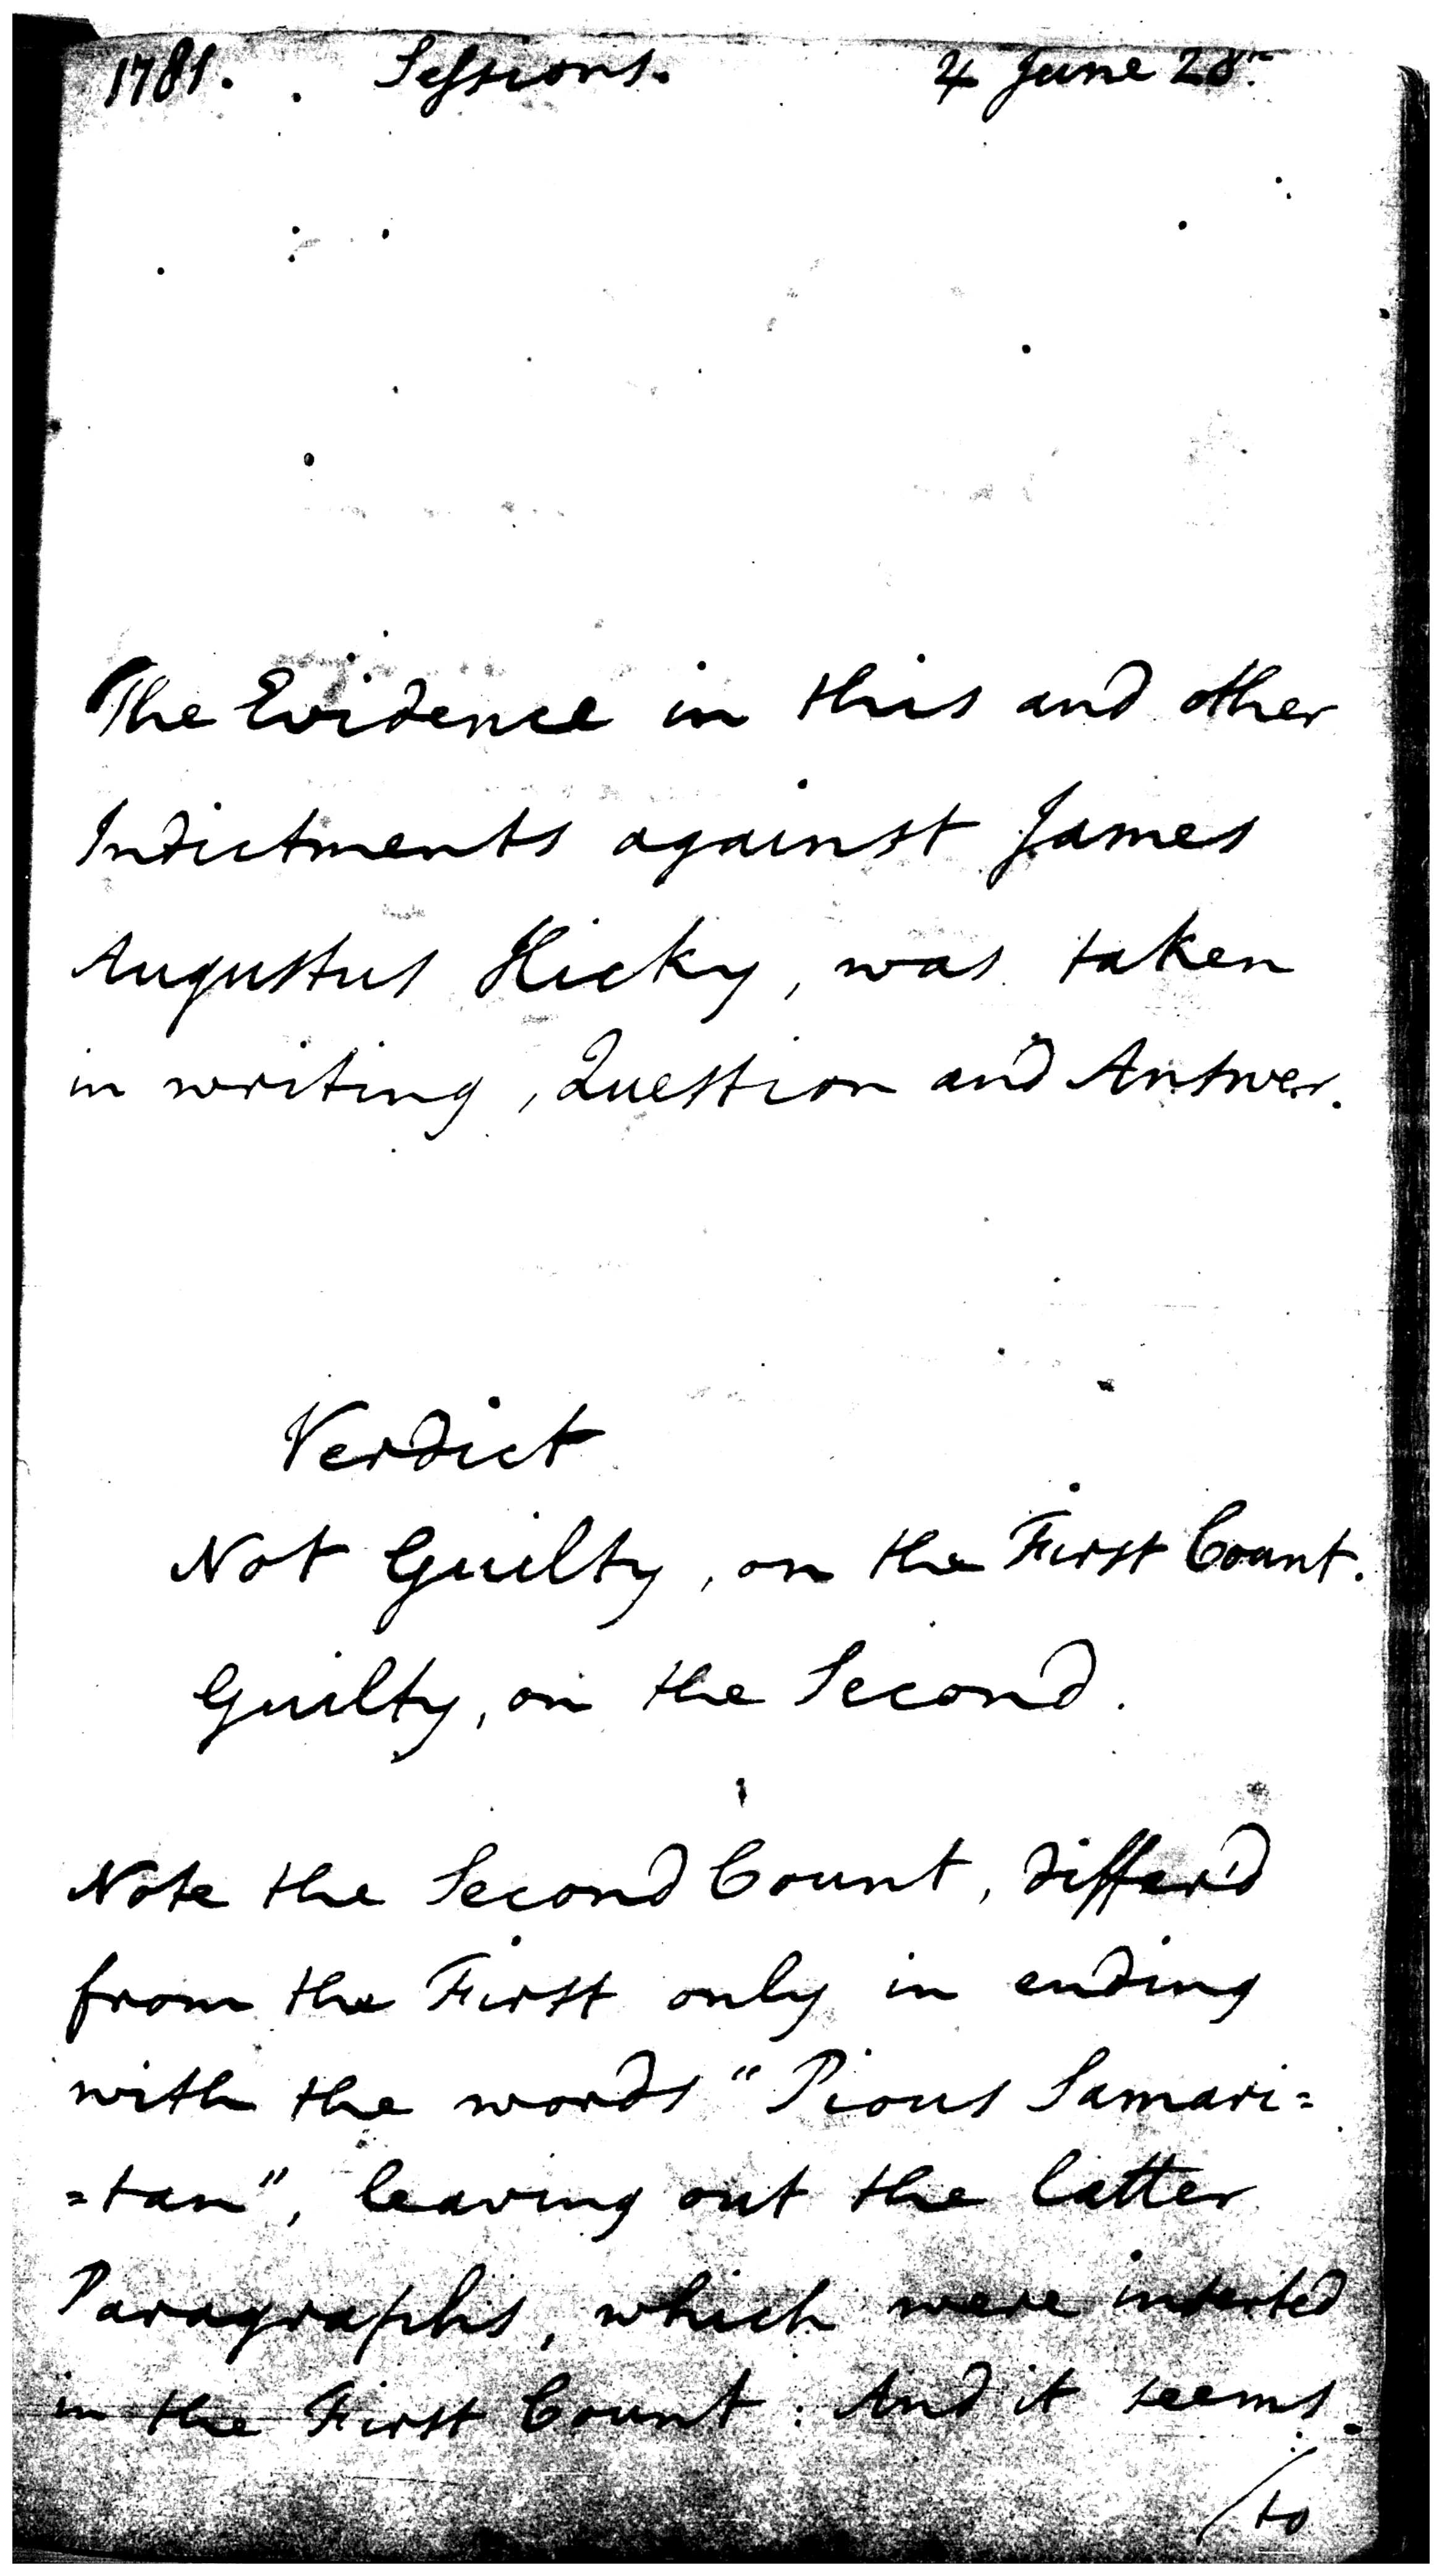 1781. Sessions. 4 June 28th
The Evidence in this and other
Indictments against James
Augustus Hicky, was taken
in writing, Question and Answer.
Verdict
Not Guilty, on the First Count.
Guilty, on the Second.
Note the Second Count, differ'd
from the First only in ending
with the words "Pious Samari=
=tan", leaving out the latter
Paragraphs, which were inserted
in the First Count: And it seems
/to